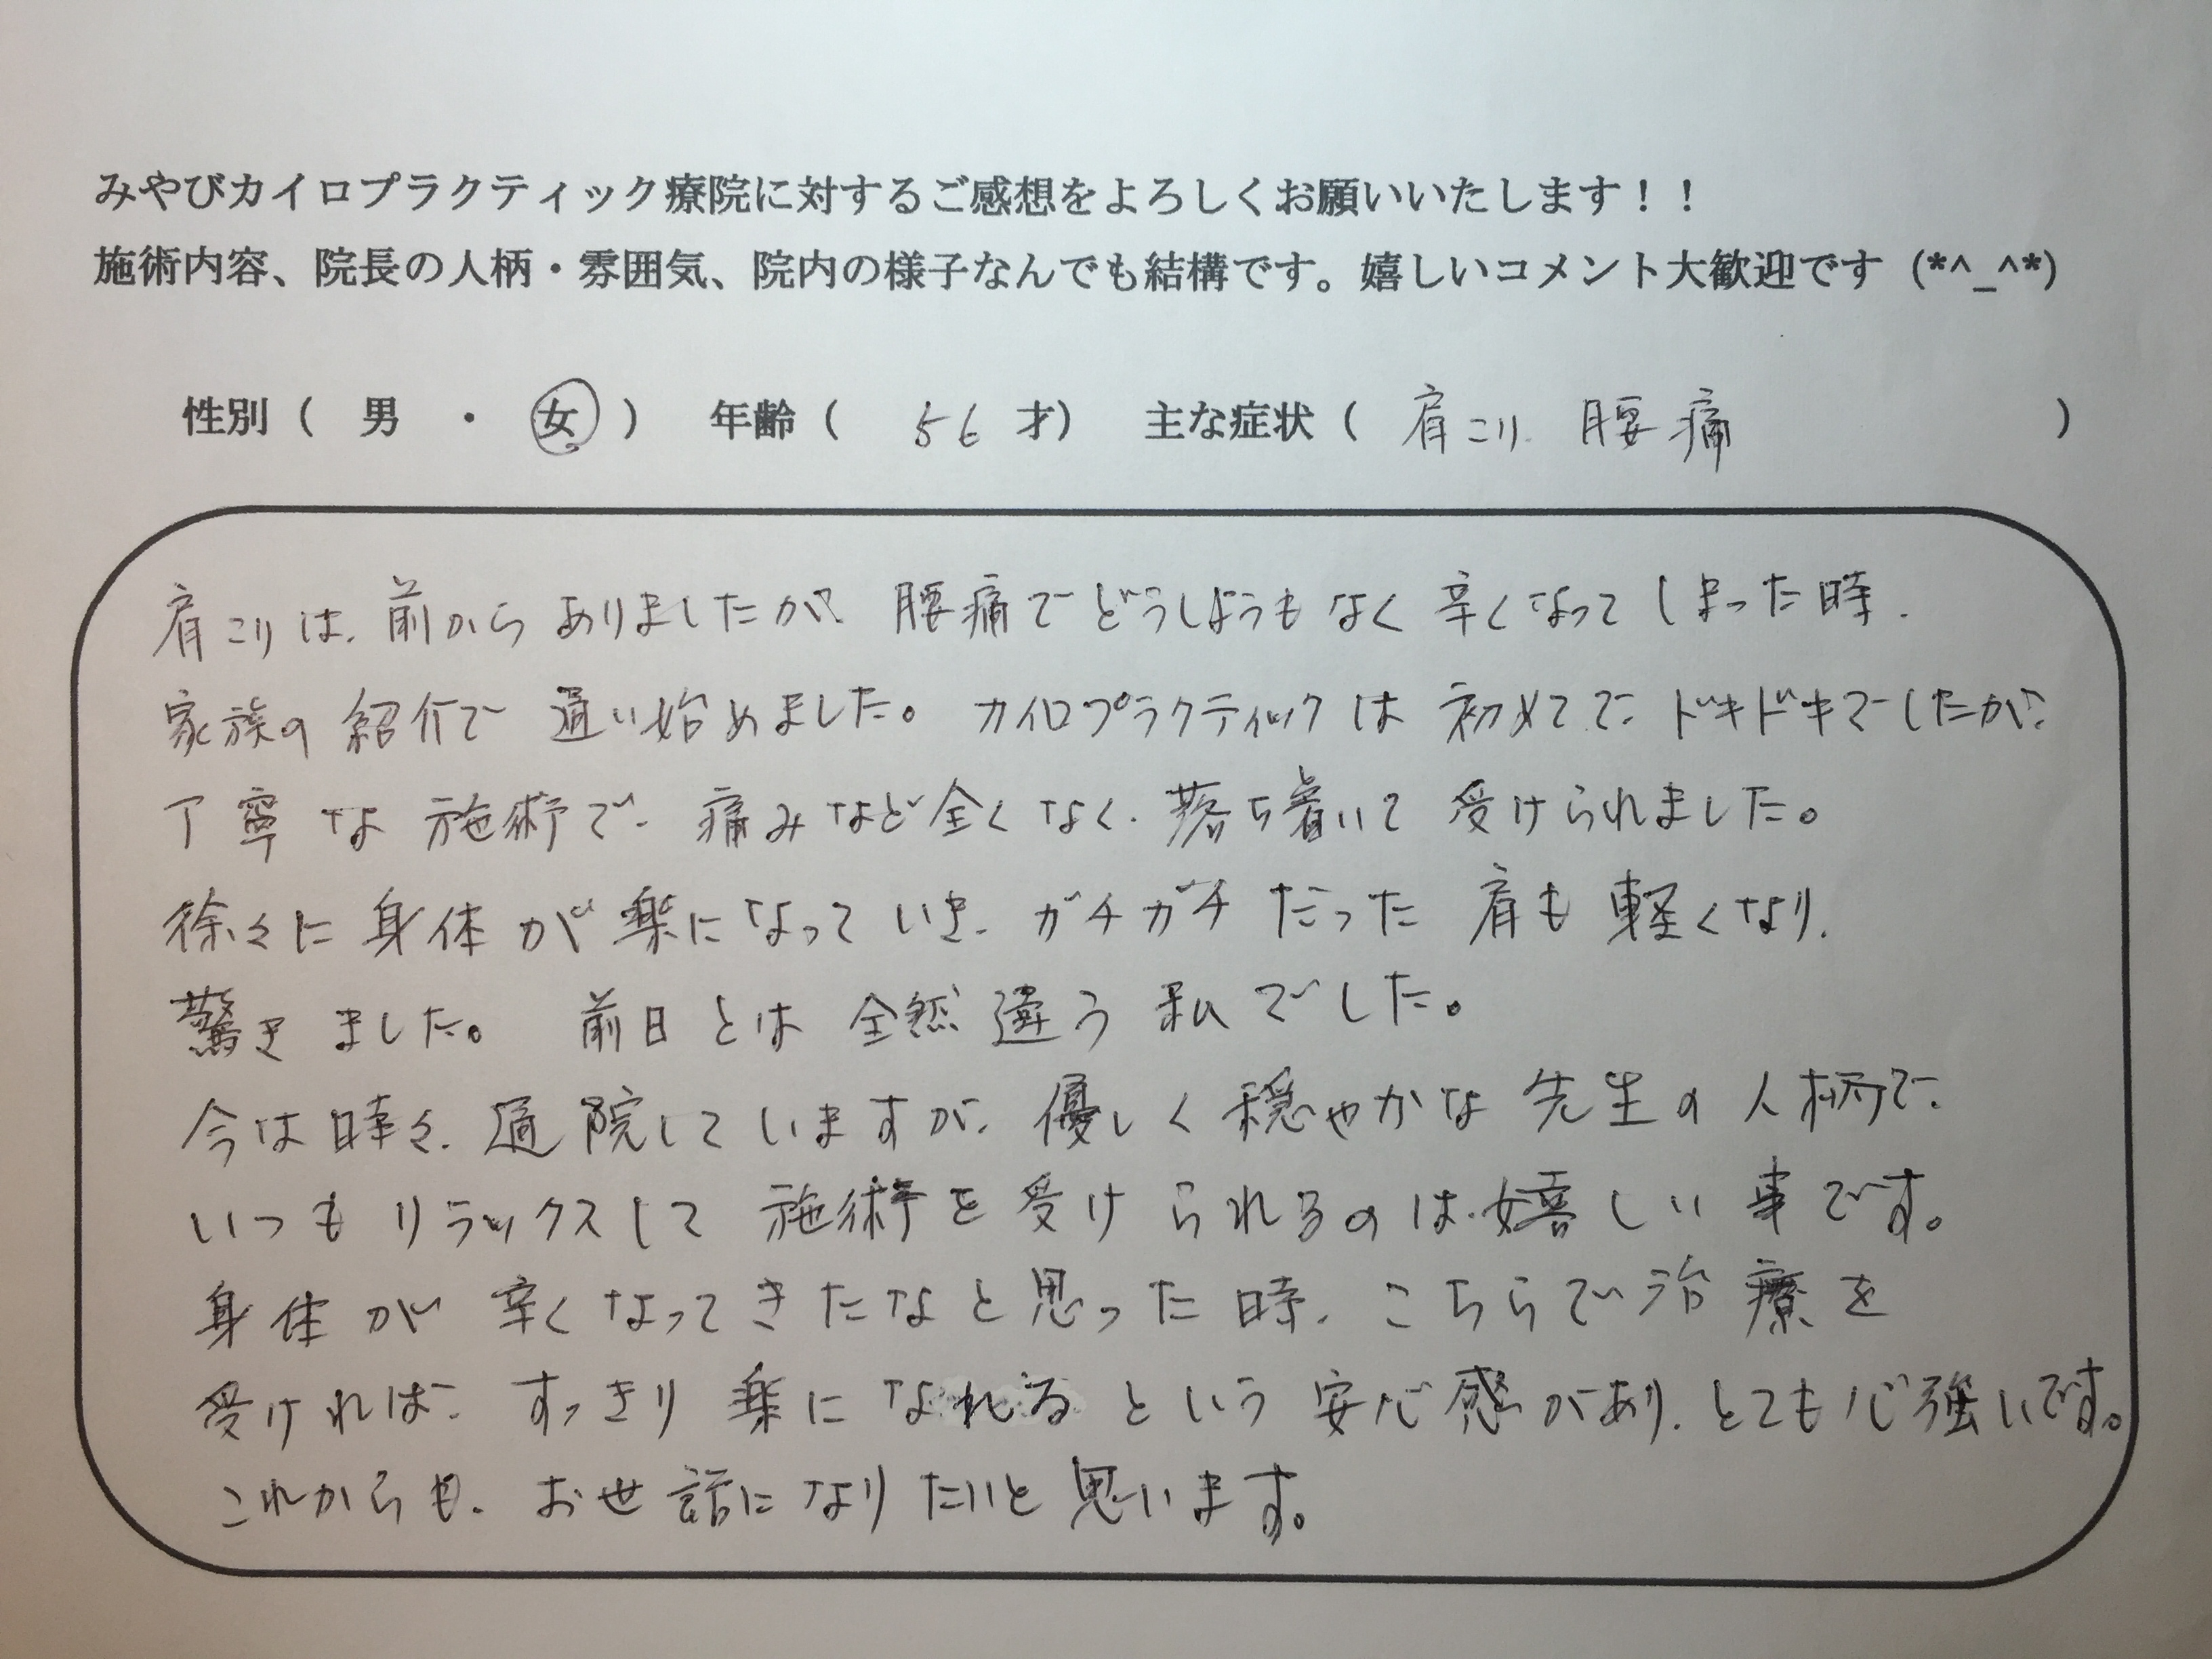 みやびカイロプラクティック療院に対するご感想をよろしくお願いいたします！！
施術内容、院長の人柄・雰囲気、院内の様子なんでも結構です。嬉しいコメント大歓迎です（*^_^*）
性別（　男　・　女　）　年齢（　56　才）　主な症状（　肩こり、腰痛　）
肩こりは、前からありましたが、腰痛でどうしようもなく辛くなってしまった時、
家族の紹介で通い始めました。カイロプラクティックは初めてで、ドキドキでしたが、
丁寧な施術で、痛みなど全くなく、落ち着いて受けられました。
徐々に身体が楽になっていき、ガチガチだった肩も軽くなり、
驚きました。　前日とは全然違う私でした。
今は時々、通院していますが、優しく穏やかな先生の人柄で、
いつもリラックスして施術を受けられるのは、嬉しい事です。
身体が辛くなってきたなと思った時、こちらで治療を
受ければ、すっきり楽になれるという安心感があり、とても心強いです。
これからも、お世話になりたいと思います。